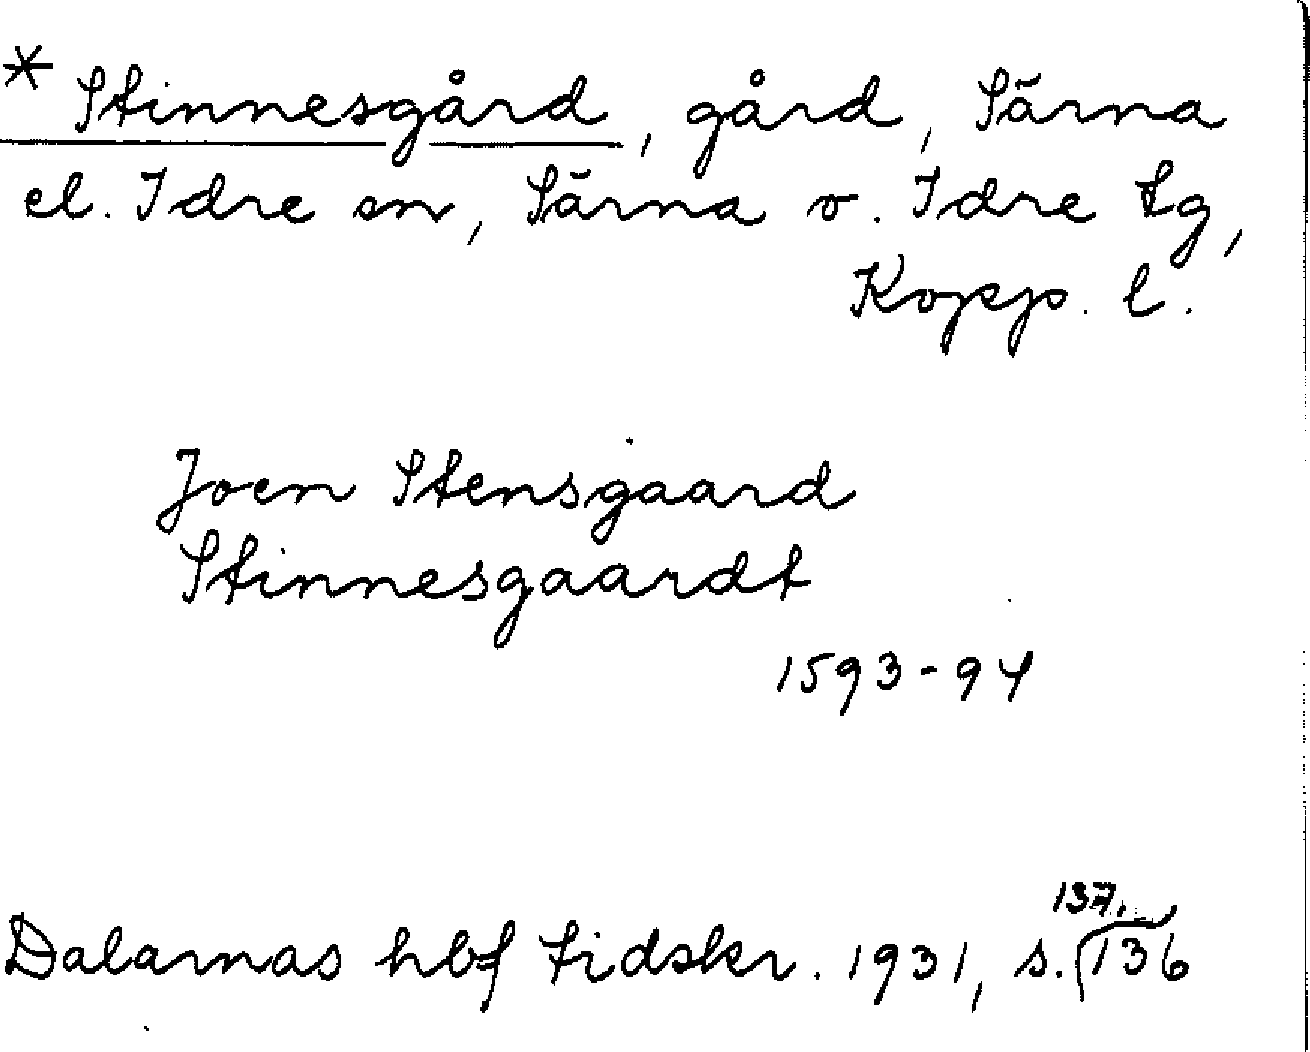 * Stinnesgård, gård, Särna
el. Idre sn, Särna o. Idre tg,
Kopp. l.
Joen Stensgaard
Stinnesgaardt
1593-94
137,
Dalarnas hbf tidskr. 1931, s. 136